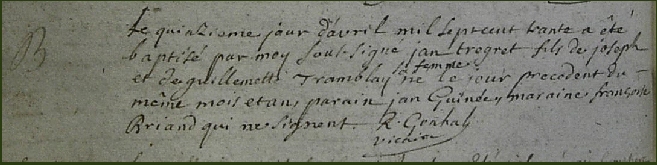 B
Le quinzieme jour d'avril mil sept cent trante a été
baptisé par moy sous-signé jan trogret fils de joseph
et de guillemette Tramblay sa femme né le jour precedent du
même mois et an, parain jan Guindey maraine françoise
Briand qui ne signent.
vicaire